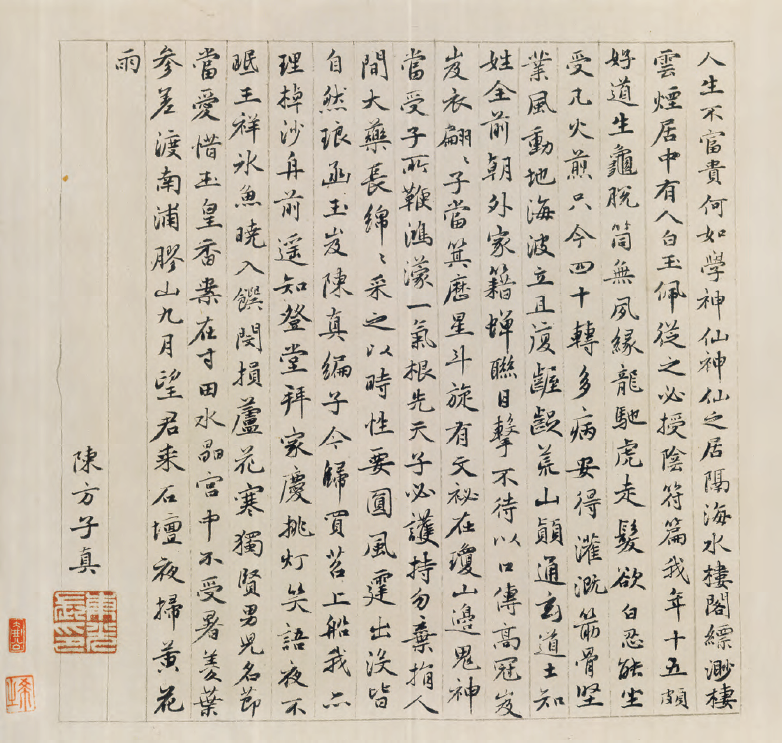 人生不富貴何如學神仙神仙之居隔海水樓閣縹渺棲
雲煙居中有人白玉佩從之必授陰符篇我年十五頗
好道生龜脫筒無夙緣龍馳虎走髮欲白忍能坐
受凡火煎只今四十轉多病安得灌溉筋骨堅
業風動地海波立且復齷齪荒山顛通玄道士知
姓全前朝外家籍蟬聯目擊不待以口傳高冠岌
岌衣翩〻子當箕歷星斗旋有文祕在瓊山邊鬼神
當受子所鞭鴻濛一氣根先天子必護持勿棄捐人
間大藥長綿〻采之以時性要圓風霆出沒皆
自然琅函玉岌陳真編子今歸買苕上船我亦
理棹沙舟前遥知登堂拜家慶挑灯笑語夜不
眠王祥氷魚曉入饌閔損蘆花寒獨賢男兒名節
當愛惜玉皇香案在寸田水晶宮中不受暑菱葉
參差渡南浦膠山九月望君来石壇夜掃黄花
雨
陳方子真